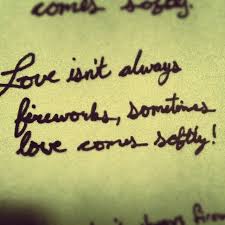 comes softly.
Love isn't always
fireworks, sometimes
love comes softly!